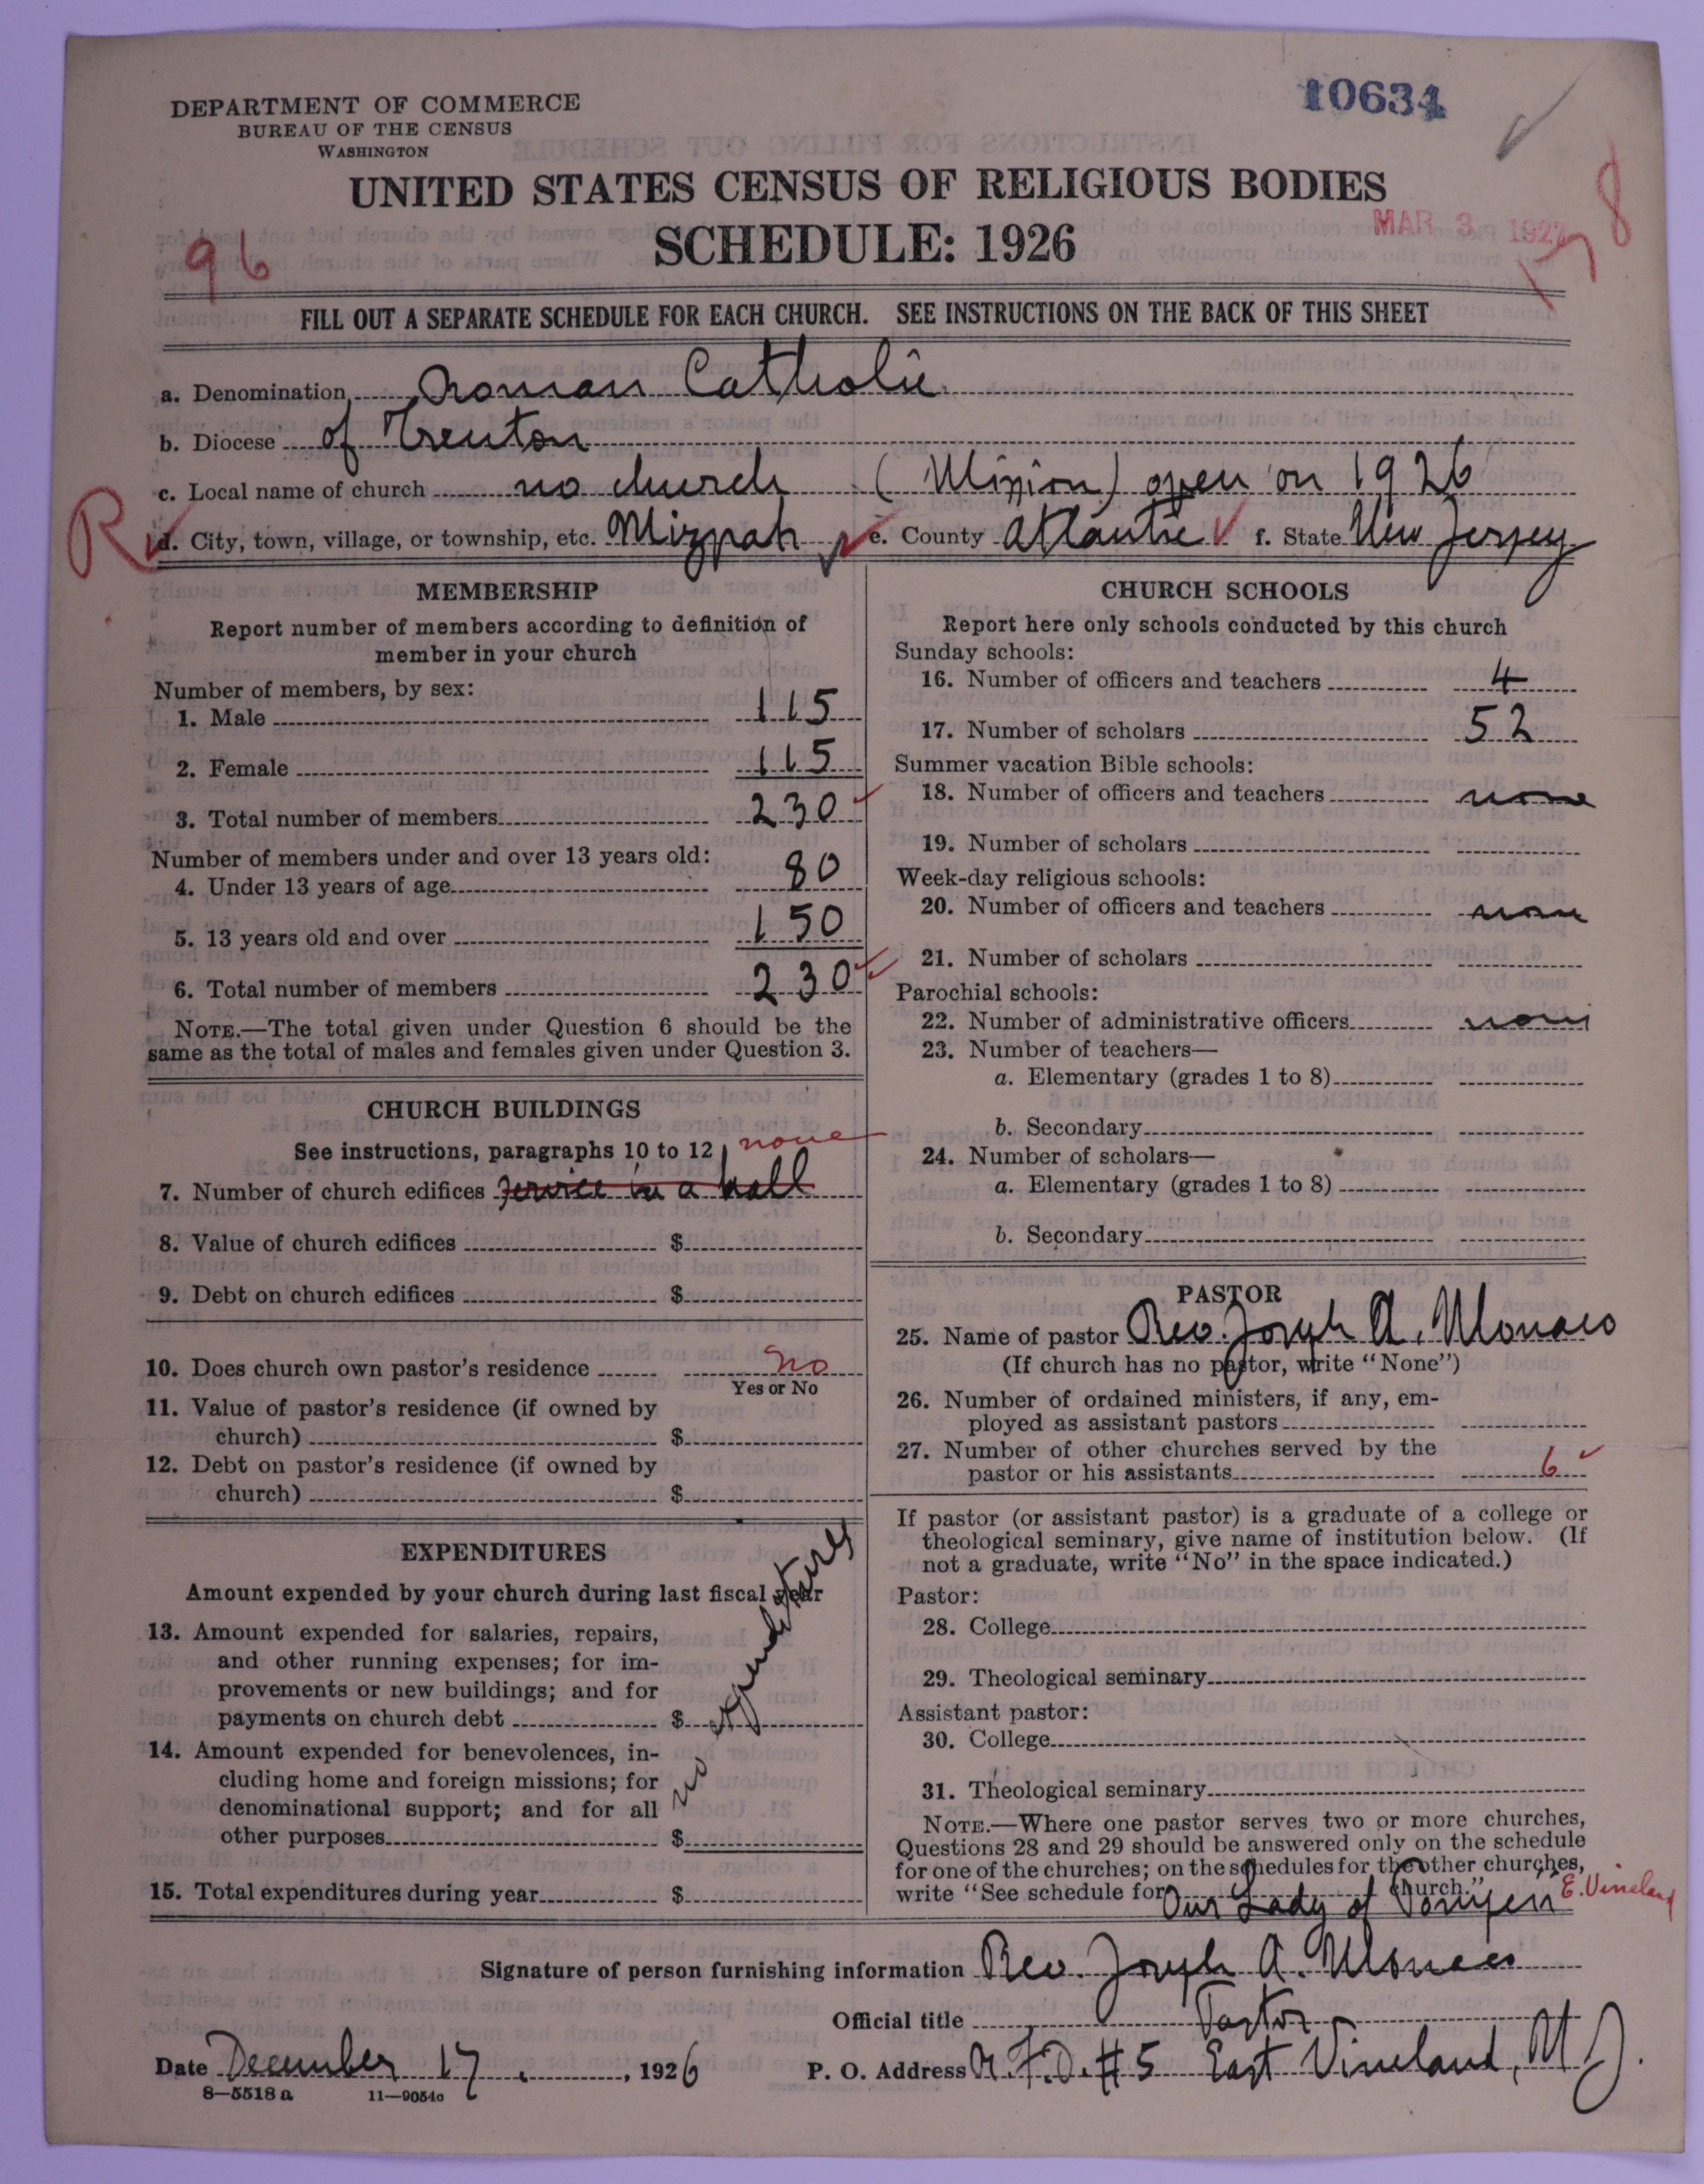 10634
DEPARTMENT OF COMMERCE
BUREAU OF THE CENSUS
WASHINGTON
UNITED STATES CENSUS OF RELIGIOUS BODIES
SCHEDULE: 1926
MAR 3 1927
178
96
FILL OUT A SEPARATE SCHEDULE FOR EACH CHURCH. SEE INSTRUCTIONS ON THE BACK OF THIS SHEET
a. Denomination Roman Catholic
b. Diocese of Trenton
c. Local name of church no church (Mission) open on 1926
R d. City, town, village, or township, etc. Mizpah e. County Atlantic f. State New Jersey
MEMBERSHIP
Report number of members according to definition of
member in your church
Number of members, by sex:
1. Male 115
2. Female 115
3. Total number of members 230
Number of members under and over 13 years old:
4. Under 13 years of age 80
5. 13 years old and over 150
6. Total number of members 230
NOTE.—The total given under Question 6 should be the
same as the total of males and females given under Question 3.
CHURCH BUILDINGS
See instructions, paragraphs 10 to 12 none
7. Number of church edifices Service in a hall
8. Value of church edifices $
9. Debt on church edifices $
10. Does church own pastor's residence No
Yes or No
11. Value of pastor's residence (if owned by
church) $
12. Debt on pastor's residence (if owned by
church) $
EXPENDITURES
Amount expended by your church during last fiscal year
13. Amount expended for salaries, repairs,
and other running expenses; for im-
provements or new buildings; and for
payments on church debt $
14. Amount expended for benevolences, in-
cluding home and foreign missions; for
denominational support; and for all
other purposes $
No expenditures
15. Total expenditures during year $
CHURCH SCHOOLS
Report here only schools conducted by this church
Sunday schools:
16. Number of officers and teachers 4
17. Number of scholars 52
Summer vacation Bible schools:
18. Number of officers and teachers none
19. Number of scholars
Week-day religious schools:
20. Number of officers and teachers none
21. Number of scholars
Parochial schools:
22. Number of administrative officers none
23. Number of teachers—
a. Elementary (grades 1 to 8)
b. Secondary
24. Number of scholars—
a. Elementary (grades 1 to 8)
b. Secondary
PASTOR
25. Name of pastor Rev. Joseph A. Monaco
(If church has no pastor, write "None")
26. Number of ordained ministers, if any, em-
ployed as assistant pastors
27. Number of other churches served by the
pastor or his assistants 6
If pastor (or assistant pastor) is a graduate of a college or
theological seminary, give name of institution below. (If
not a graduate, write "No" in the space indicated.)
Pastor:
28. College
29. Theological seminary
Assistant pastor:
30. College
31. Theological seminary
NOTE.—Where one pastor serves two or more churches,
Questions 28 and 29 should be answered only on the schedule
for one of the churches; on the schedules for the other churches,
write "See schedule for church."
Our Lady of Pompeii E. Vineland
Signature of person furnishing information Rev. Joseph A. Monaco
Official title Pastor
Date December 17, 1926 P. O. Address R.F.D. #5 East Vineland, N.J.
8—5518 a 11—9054a